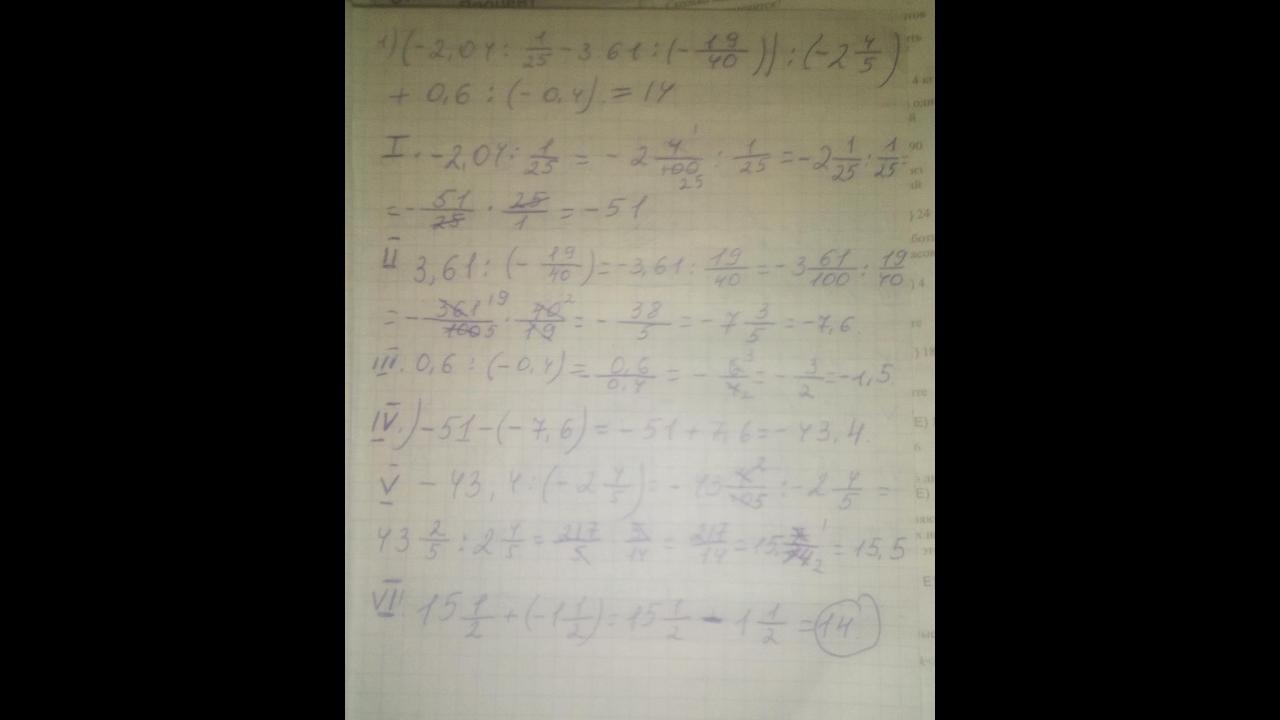 1) (-2,04 : 1/25 - 3.61 : (-19/40)) : (-2 4/5)
+ 0,6 : (-0,4) = 14
I. -2,04 : 1/25 = -2 4/100 : 1/25 = -2 1/25 : 1/25 =
= -51/25 · 25/1 = -51
II 3,61 : (-19/40) = -3,61 : 19/40 = -3 61/100 : 19/40
= -361/100 · 40/19 = -38/5 = -7 3/5 = -7,6.
III. 0,6 : (-0,4) = -0,6/0,4 = -6/4 = -3/2 = -1,5
IV.) -51 - (-7,6) = -51 + 7,6 = -43,4.
V -43,4 : (-2 4/5) = -43 4/10 : -2 4/5 =
43 2/5 : 2 4/5 = 217/5 · 5/14 = 217/14 = 15 7/14 = 15,5
VI. 15 1/2 + (-1 1/2) = 15 1/2 - 1 1/2 = 14